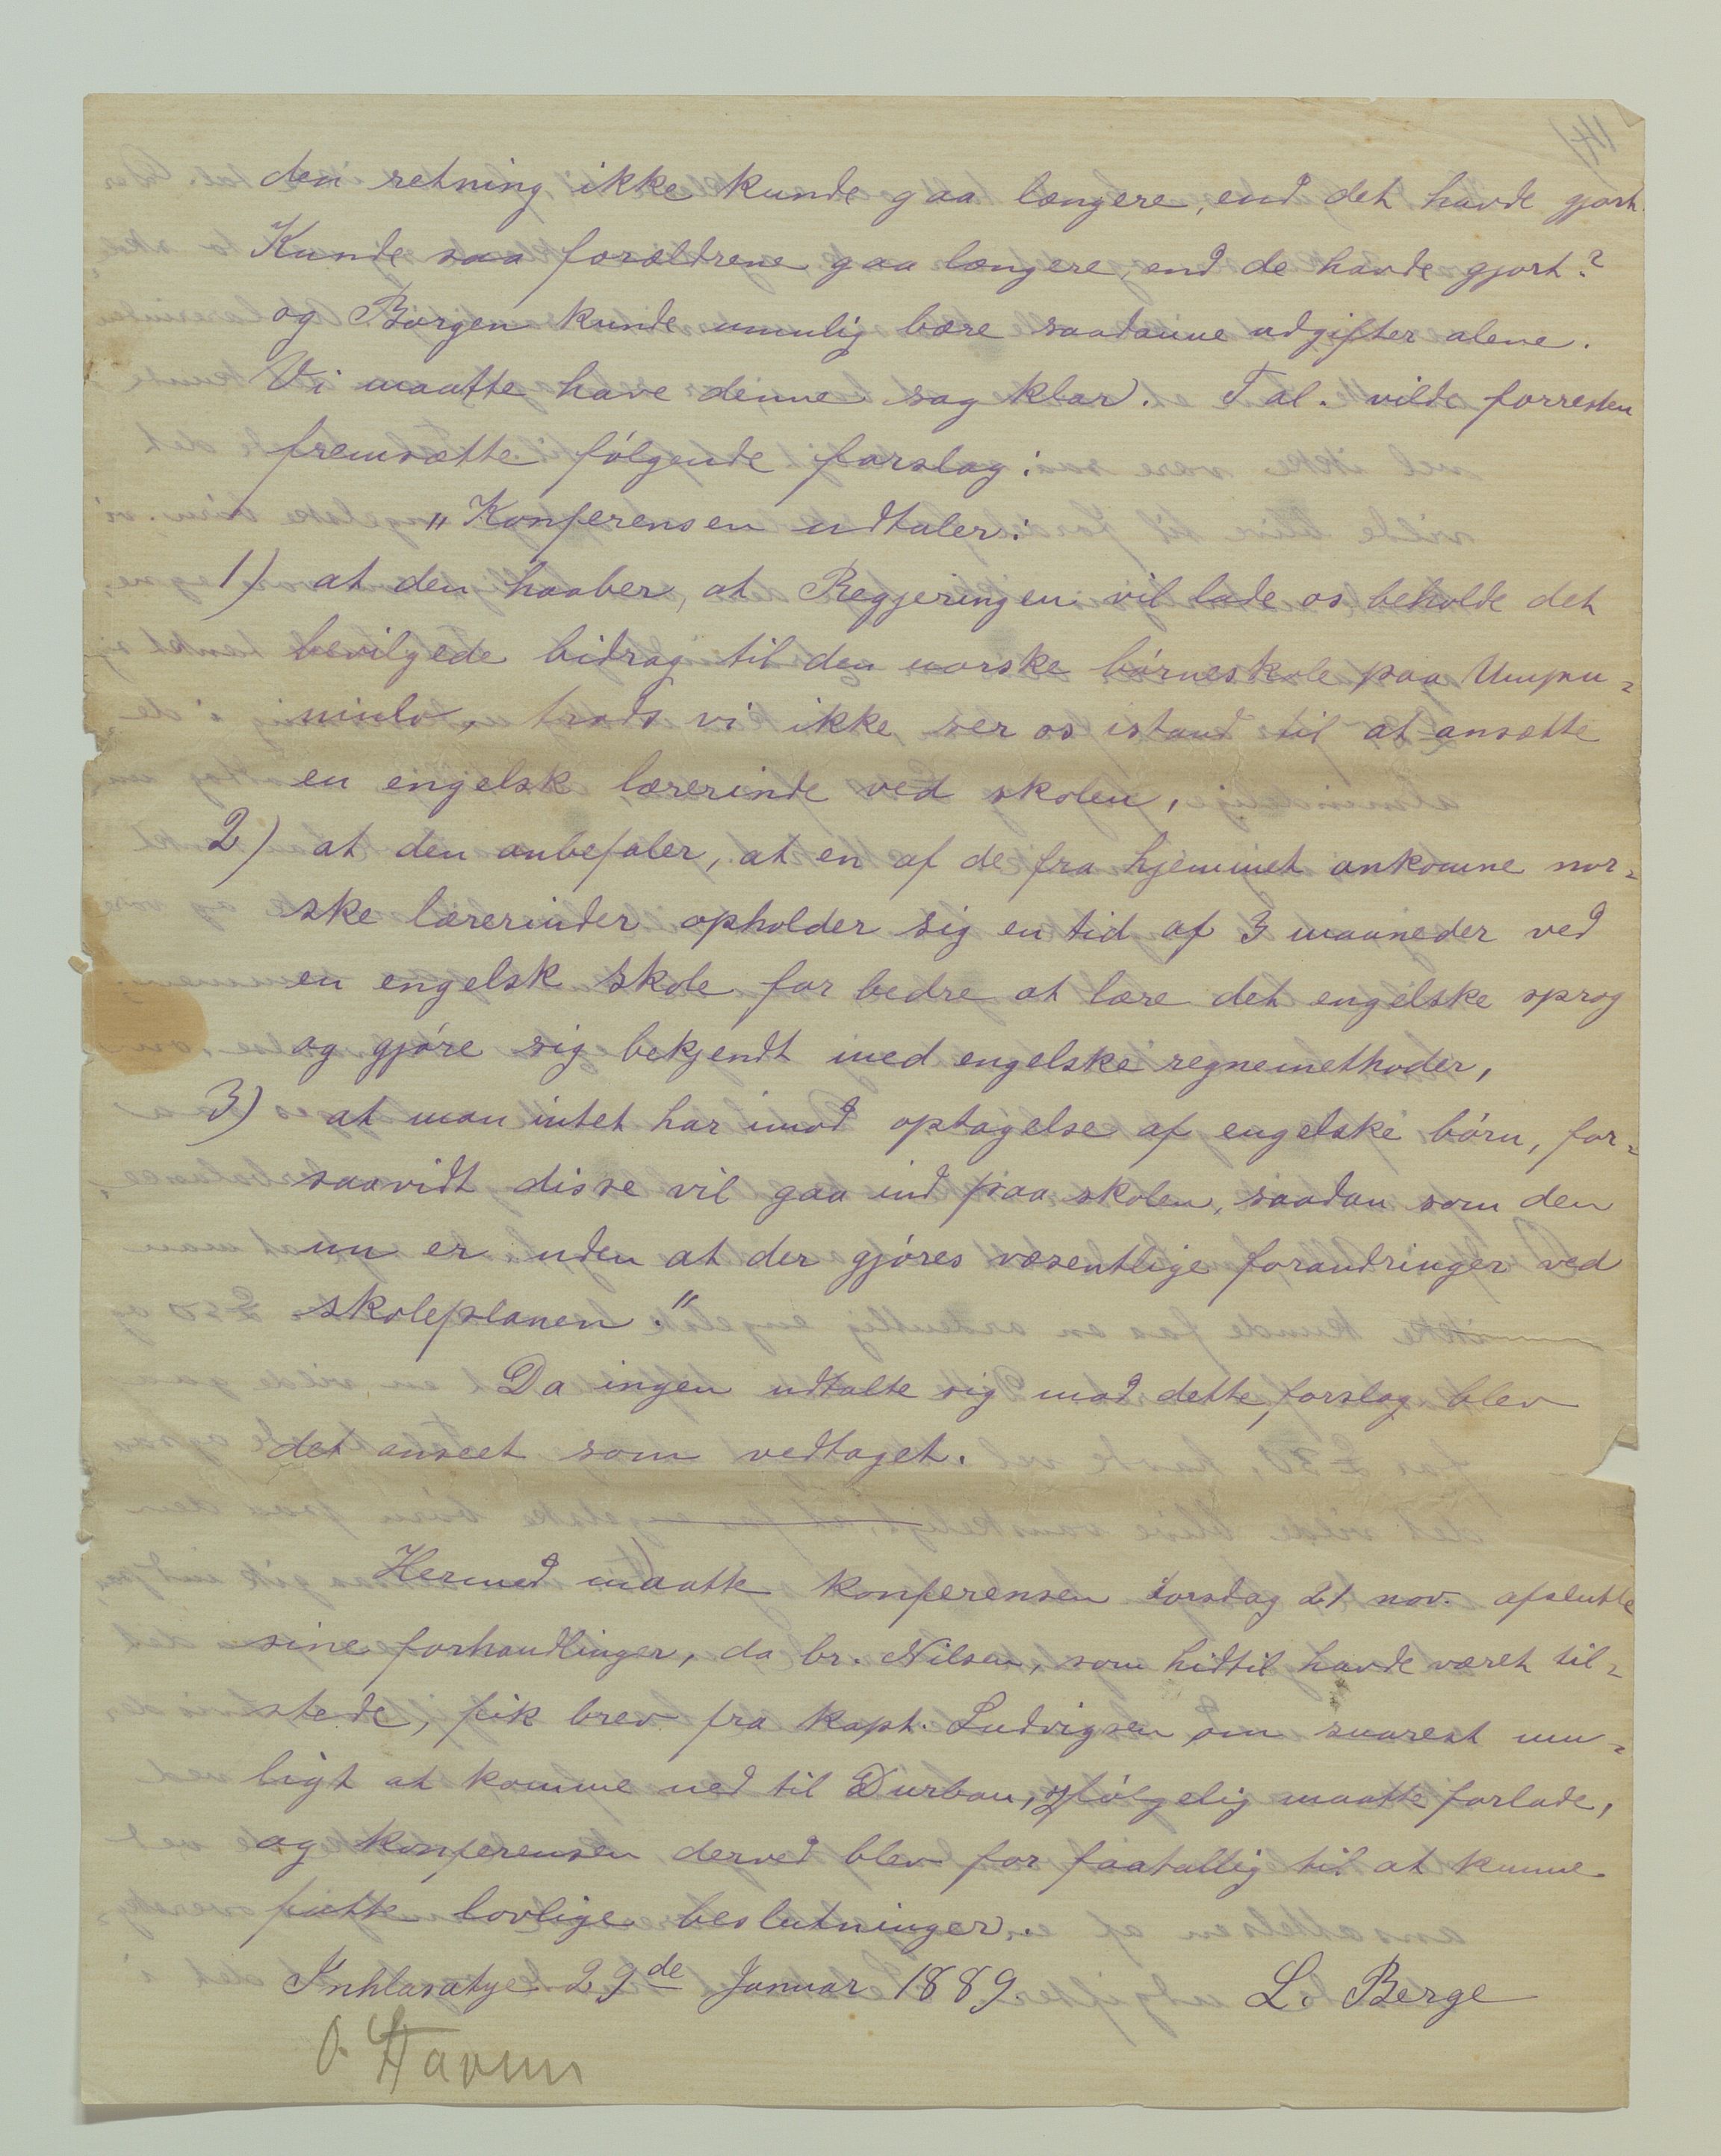 den retning ikke kunde gaa længere, end det havde gjort.
Kunde saa forældrene gaa længere, end de havde gjort?
og Borgen kunde umulig bære saadanne udgifter alene.
Vi maatte have denne sag klar. Tal. vilde forresten
fremsætte følgende forslag:
"Konferensen udtaler:
1) at den haaber, at Regjeringen vil lade os beholde det
bevilgede bidrag til den norske børneskole paa Umpu=
mulo, trods vi ikke ser os istand til at ansætte
en engelsk lærerinde ved skolen,
2) at den anbefaler, at en af de fra hjemmet ankomne nor=
ske lærerinder opholder sig en tid af 3 maaneder ved
en engelsk skole for bedre at lære det engelske sprog
og gjøre sig bekjendt med engelske regnemethoder,
3) at man intet har imod optagelse af engelske børn, for=
saavidt disse vil gaa ind paa skolen, saadan som den
nu er uden at der gjøres væsentlige forandringer ved
skoleplanen."
Da ingen udtalte sig mod dette forslag, blev
det anseet som vedtaget.
Hermed maatte konferensen torsdag 21 nov. afslutte
sine forhandlinger, da br. Nilsen, som hidtil havde været til=
stede, fik brev fra kapt. Ludvigsen om snarest mu=
ligt at komme ned til Durban, følgelig maatte forlade,
og konferensen derved blev for faatallig til at kunne
fatte lovlige beslutninger.
Inhlasatye 29de Januar 1889. L. Berge
O. Stavem